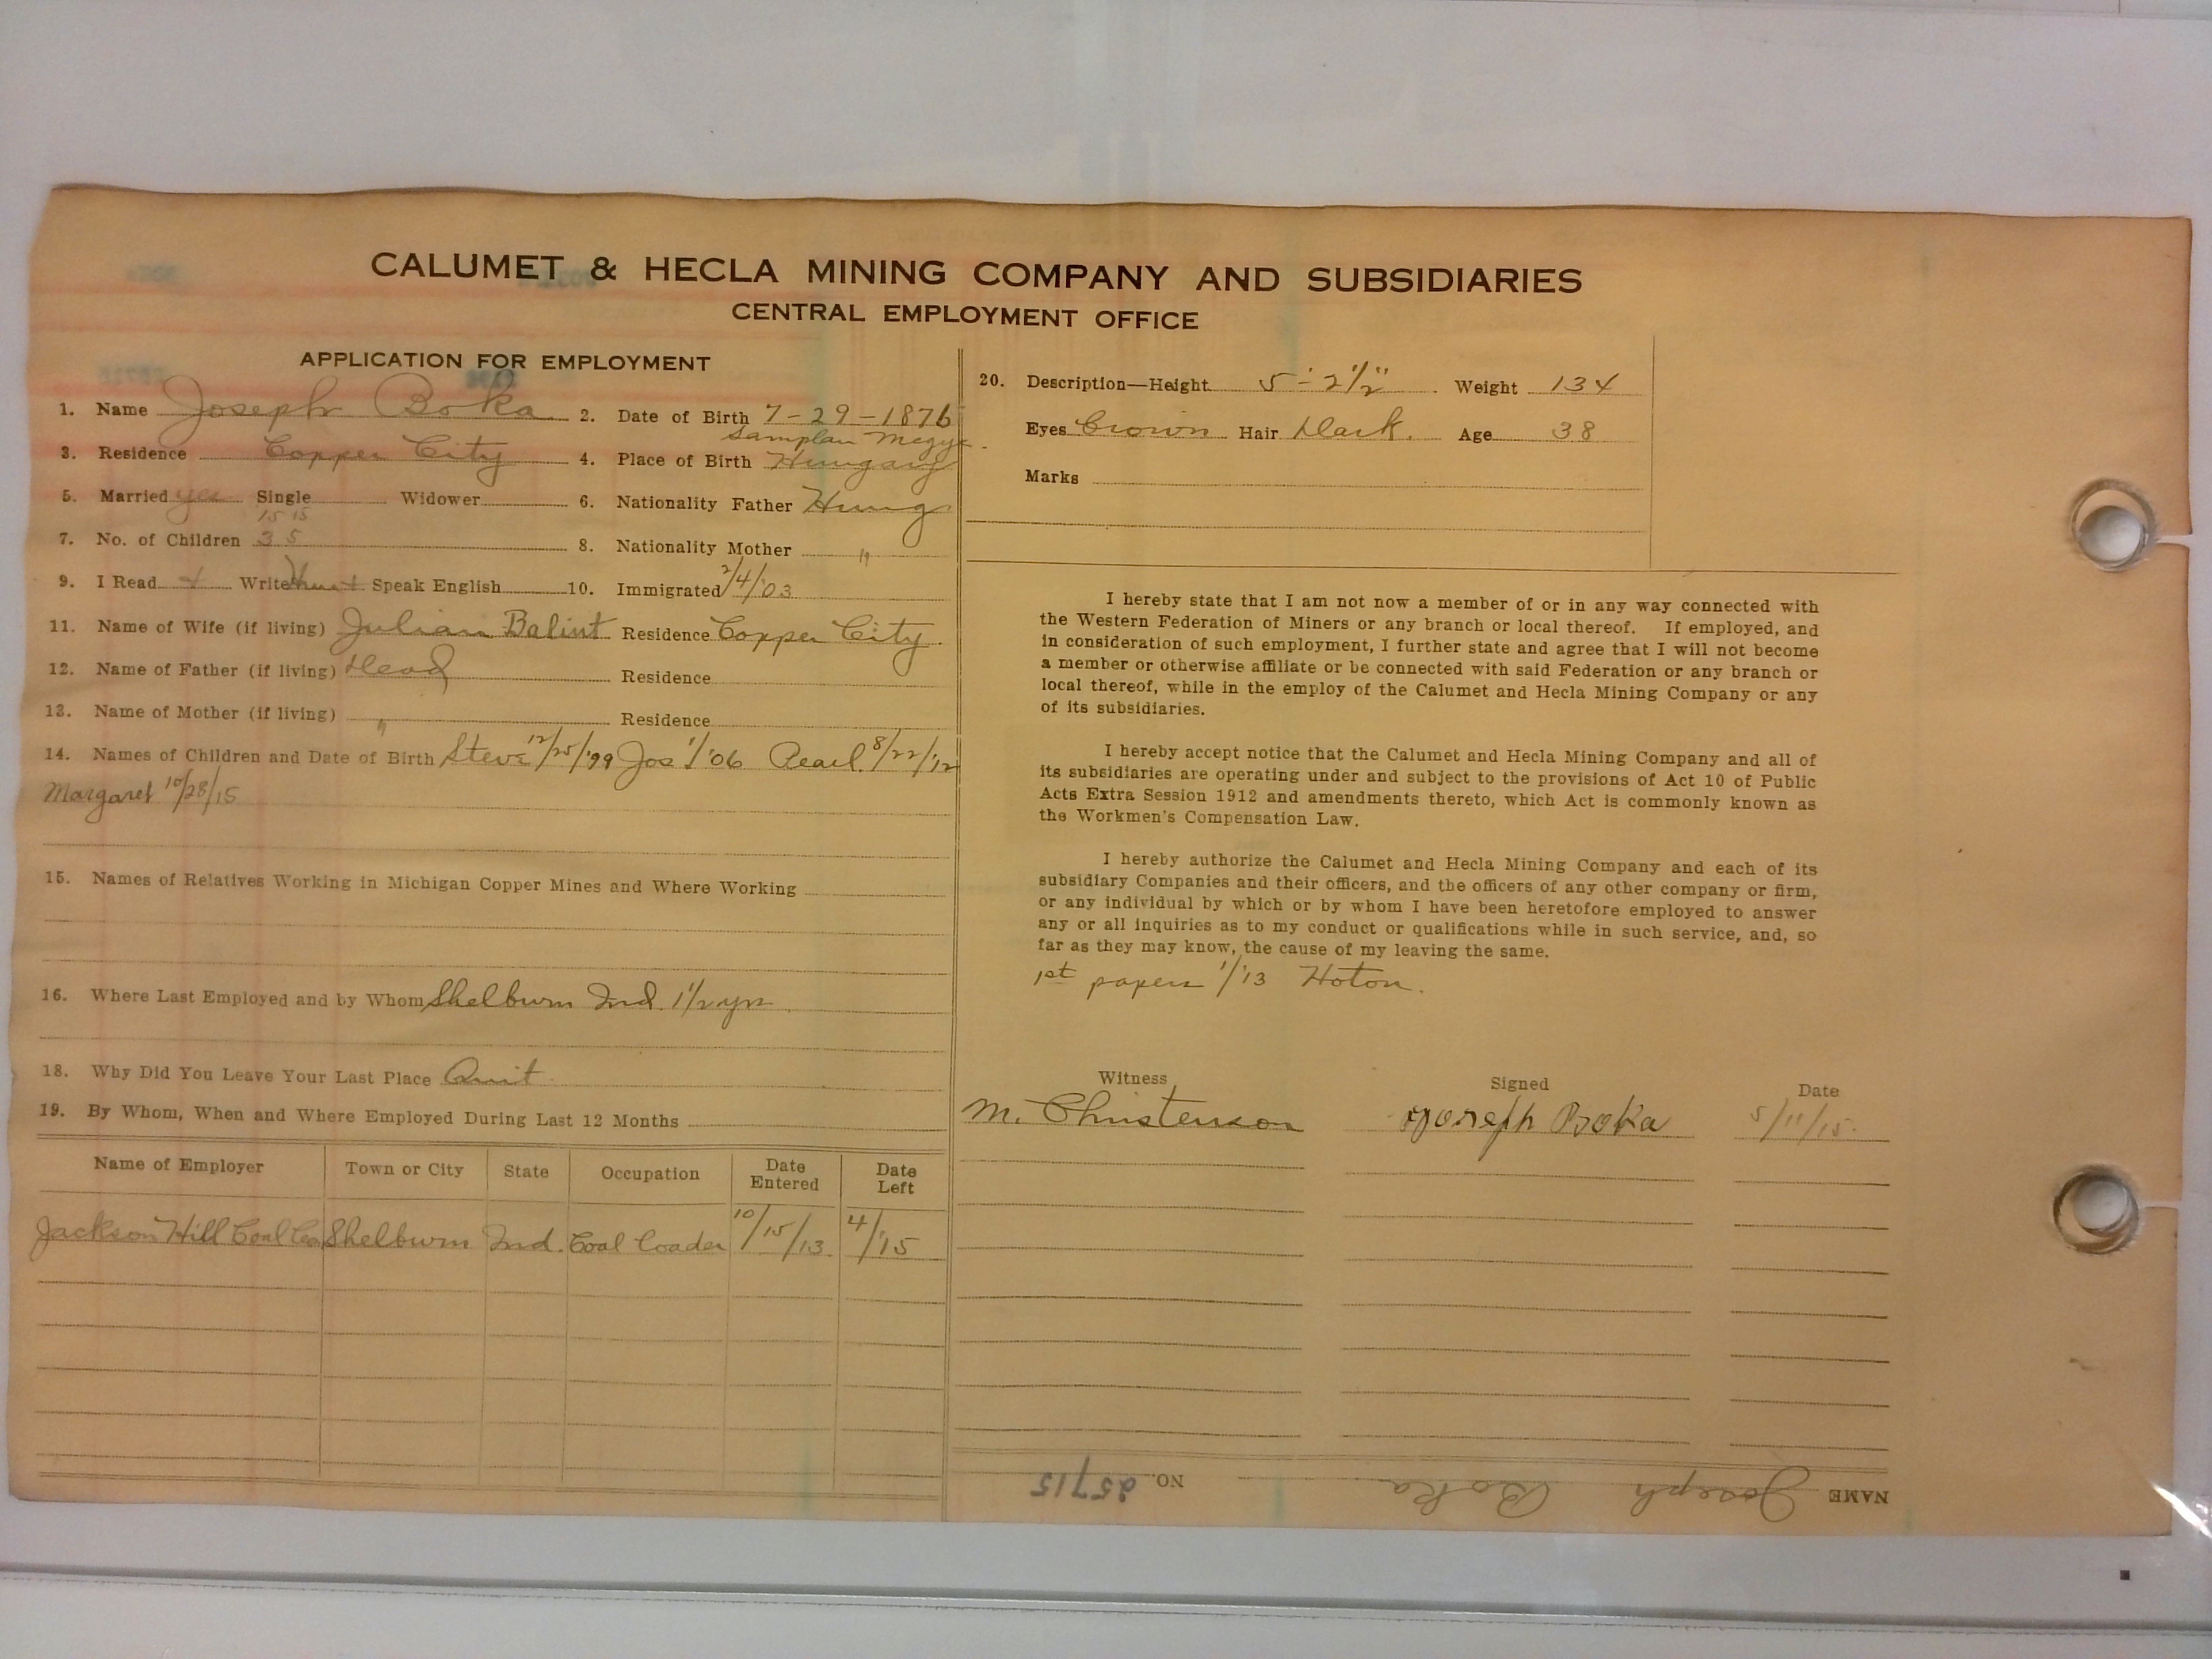 CALUMET & HECLA MINING COMPANY AND SUBSIDIARIES
CENTRAL EMPLOYMENT OFFICE
APPLICATION FOR EMPLOYMENT
1. Name Joseph Boka 2. Date of Birth 7-29-1876
3. Residence Copper City 4. Place of Birth Samplan Megye Hungary
5. Married yes Single Widower 6. Nationality Father Hung
15 15
7. No. of Children 3 5 8. Nationality Mother "
9. I Read Write Speak English 10. Immigrated 2/4/'03
11. Name of Wife (if living) Julian Balint Residence Copper City.
12. Name of Father (if living) Dead Residence
13. Name of Mother (if living) " Residence
14. Names of Children and Date of Birth Steve 12/25/'99 Jos 1/'06 Pearl 8/22/'12
Margaret 10/28/15
15. Names of Relatives Working in Michigan Copper Mines and Where Working
16. Where Last Employed and by Whom Shelburn Ind. 1 1/2 yrs
18. Why Did You Leave Your Last Place Quit
19. By Whom, When and Where Employed During Last 12 Months
Name of Employer Town or City State Occupation Date Entered Date Left
Jackson Hill Coal Co Shelburn Ind. Coal loader 10/15/13 4/'15
20. Description—Height 5'-2 1/2" Weight 134
Eyes Brown Hair Dark. Age 38
Marks
I hereby state that I am not now a member of or in any way connected with
the Western Federation of Miners or any branch or local thereof. If employed, and
in consideration of such employment, I further state and agree that I will not become
a member or otherwise affiliate or be connected with said Federation or any branch or
local thereof, while in the employ of the Calumet and Hecla Mining Company or any
of its subsidiaries.
I hereby accept notice that the Calumet and Hecla Mining Company and all of
its subsidiaries are operating under and subject to the provisions of Act 10 of Public
Acts Extra Session 1912 and amendments thereto, which Act is commonly known as
the Workmen's Compensation Law.
I hereby authorize the Calumet and Hecla Mining Company and each of its
subsidiary Companies and their officers, and the officers of any other company or firm,
or any individual by which or by whom I have been heretofore employed to answer
any or all inquiries as to my conduct or qualifications while in such service, and, so
far as they may know, the cause of my leaving the same.
1st papers 1/'13 Hoton.
Witness Signed Date
M. Christenson Joseph Boka 5/11/15.
NAME Joseph Boka NO. 25715